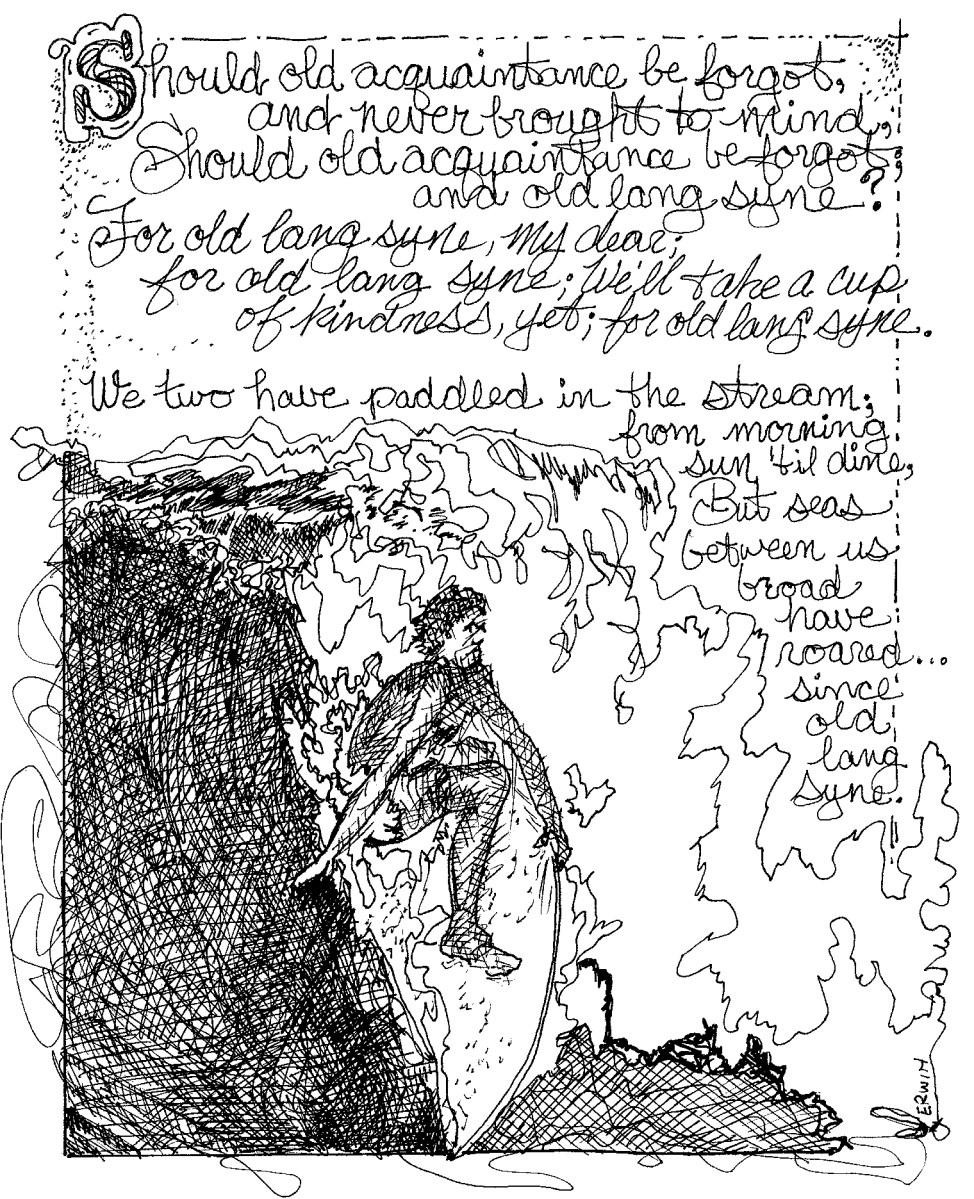 Should old acquaintance be forgot,
and never brought to mind;
Should old acquaintance be forgot,
and old lang syne?
For old lang syne, my dear;
for old lang syne; We'll take a cup
of kindness, yet; for old lang syne.
We two have paddled in the stream;
from morning
sun 'til dine;
But seas
between us
broad
have
roared...
since
old
lang
syne.
ERWIN